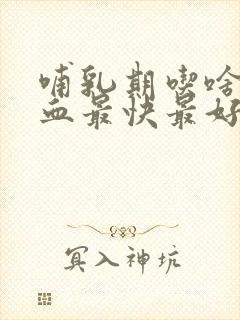 哺乳期喫啥
血最快最好
冥入神坑